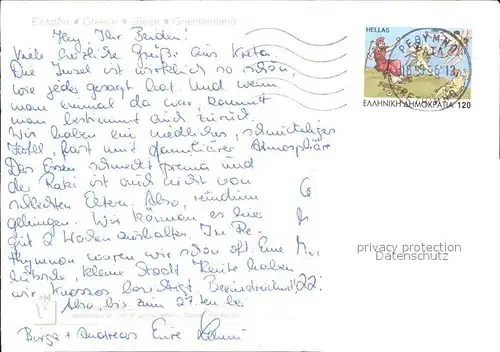 Ελλάδα • Greece • Grèce • Griechenland
Hey Ihr Beiden!
Viele herzliche Grüße aus Kreta.
Die Insel ist wirklich so schön,
wie jeder gesagt hat. Und wenn
man einmal da war, kommt
man bestimmt auch zurück.
Wir haben ein niedliches, schnuckeliges
Hotel fast mit familiärer Atmosphäre
Das Essen schmeckt prima und
der Raki ist auch nicht von
schlechten Eltern. Also, rundum
gelungen. Wir können es hier
gut 2 Wochen aushalten. In Re-
thymnon waren wir schon oft. Eine
hübsche kleine Stadt. Heute haben
wir Knossos besichtigt. Beeindruckend!
Also, bis zum 27.ten bei
Birga + Andreas Eure
HELLAS
ΡΕΘΥΜΝΟ
ΕΛΛΗΝΙΚΗ ΔΗΜΟΚΡΑΤΙΑ 120
22
privacy protection
Datenschutz